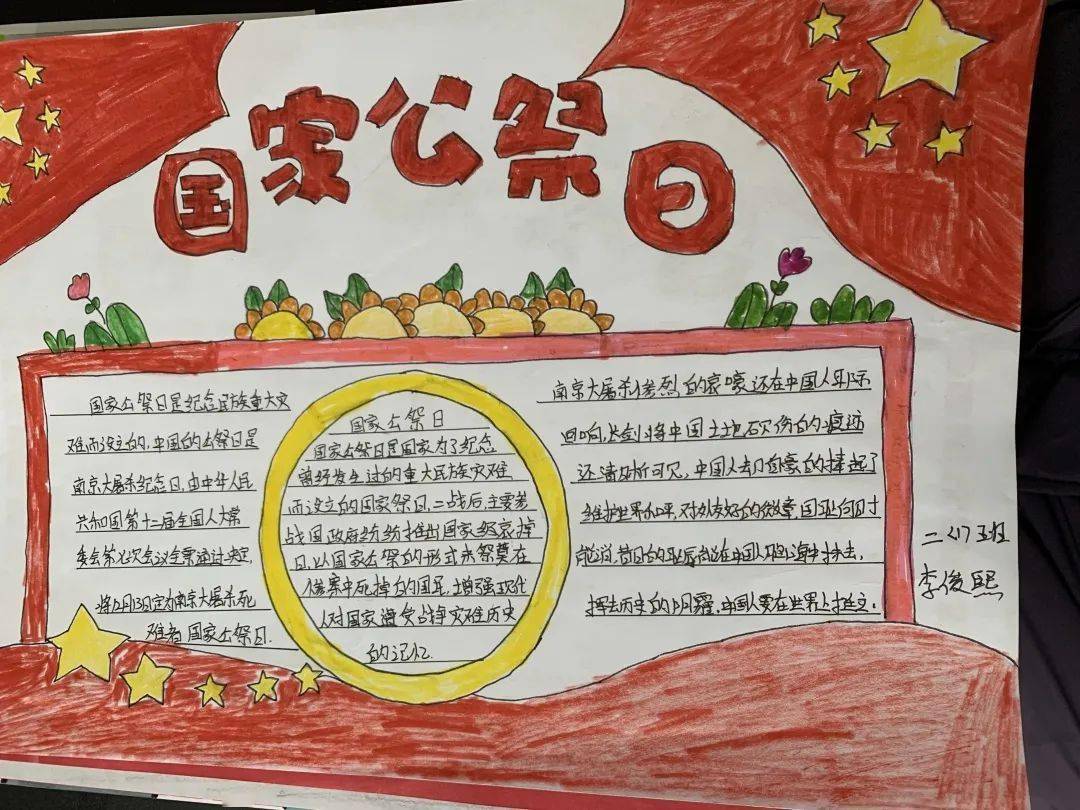 国家公祭日
国家公祭日是纪念民族重大灾
难而设立的,中国的公祭日是
南京大屠杀纪念日,由中华人民
共和国第十二届全国人大常
委会第七次会议全票通过决定,
将12月13日定为南京大屠杀死
难者国家公祭日.
国家公祭日
国家公祭日是国家为了纪念
曾经发生过的重大民族灾难
而设立的国家祭日,二战后,主要参
战国政府纷纷推出国家级哀悼
日,以国家公祭的形式来祭奠在
惨案中死掉的国民,增强现代
人对国家遭受战争灾难历史
的记忆.
南京大屠杀惨烈的哀嚎,还在中国人耳际
回响,长剑将中国土地砍伤的痕迹
还清晰可见,中国人却自豪的捧起了
维护世界和平,对外友好的徽章,国耻何时
能消,昔日的耻辱就在中国人脑海中抹去,
挥去历史的阴霾,中国人要在世界上挺立.
二(1)班
李俊熙